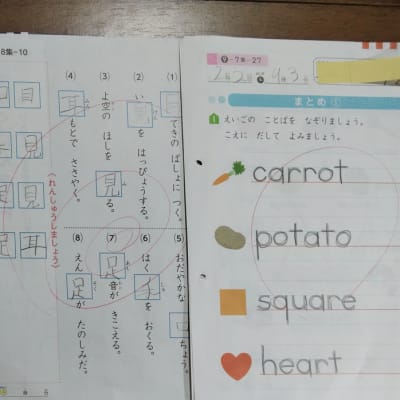 8集-10
(1)
てきの ばしょに つく。
(2)
い見を はっぴょうする。
(3)
よ空の ほしを 見る。
(4)
耳もとで ささやく。
(5)
おだやかな 口ちょう。
(6)
はく手を おくる。
(7)
足音が きこえる。
(8)
えん足が たのしみだ。
〈れんしゅうしましょう〉
目
見
見
足
耳
9-7集-27
まとめ ①
1 えいごの ことばを なぞりましょう。
こえに だして よみましょう。
carrot
potato
square
heart